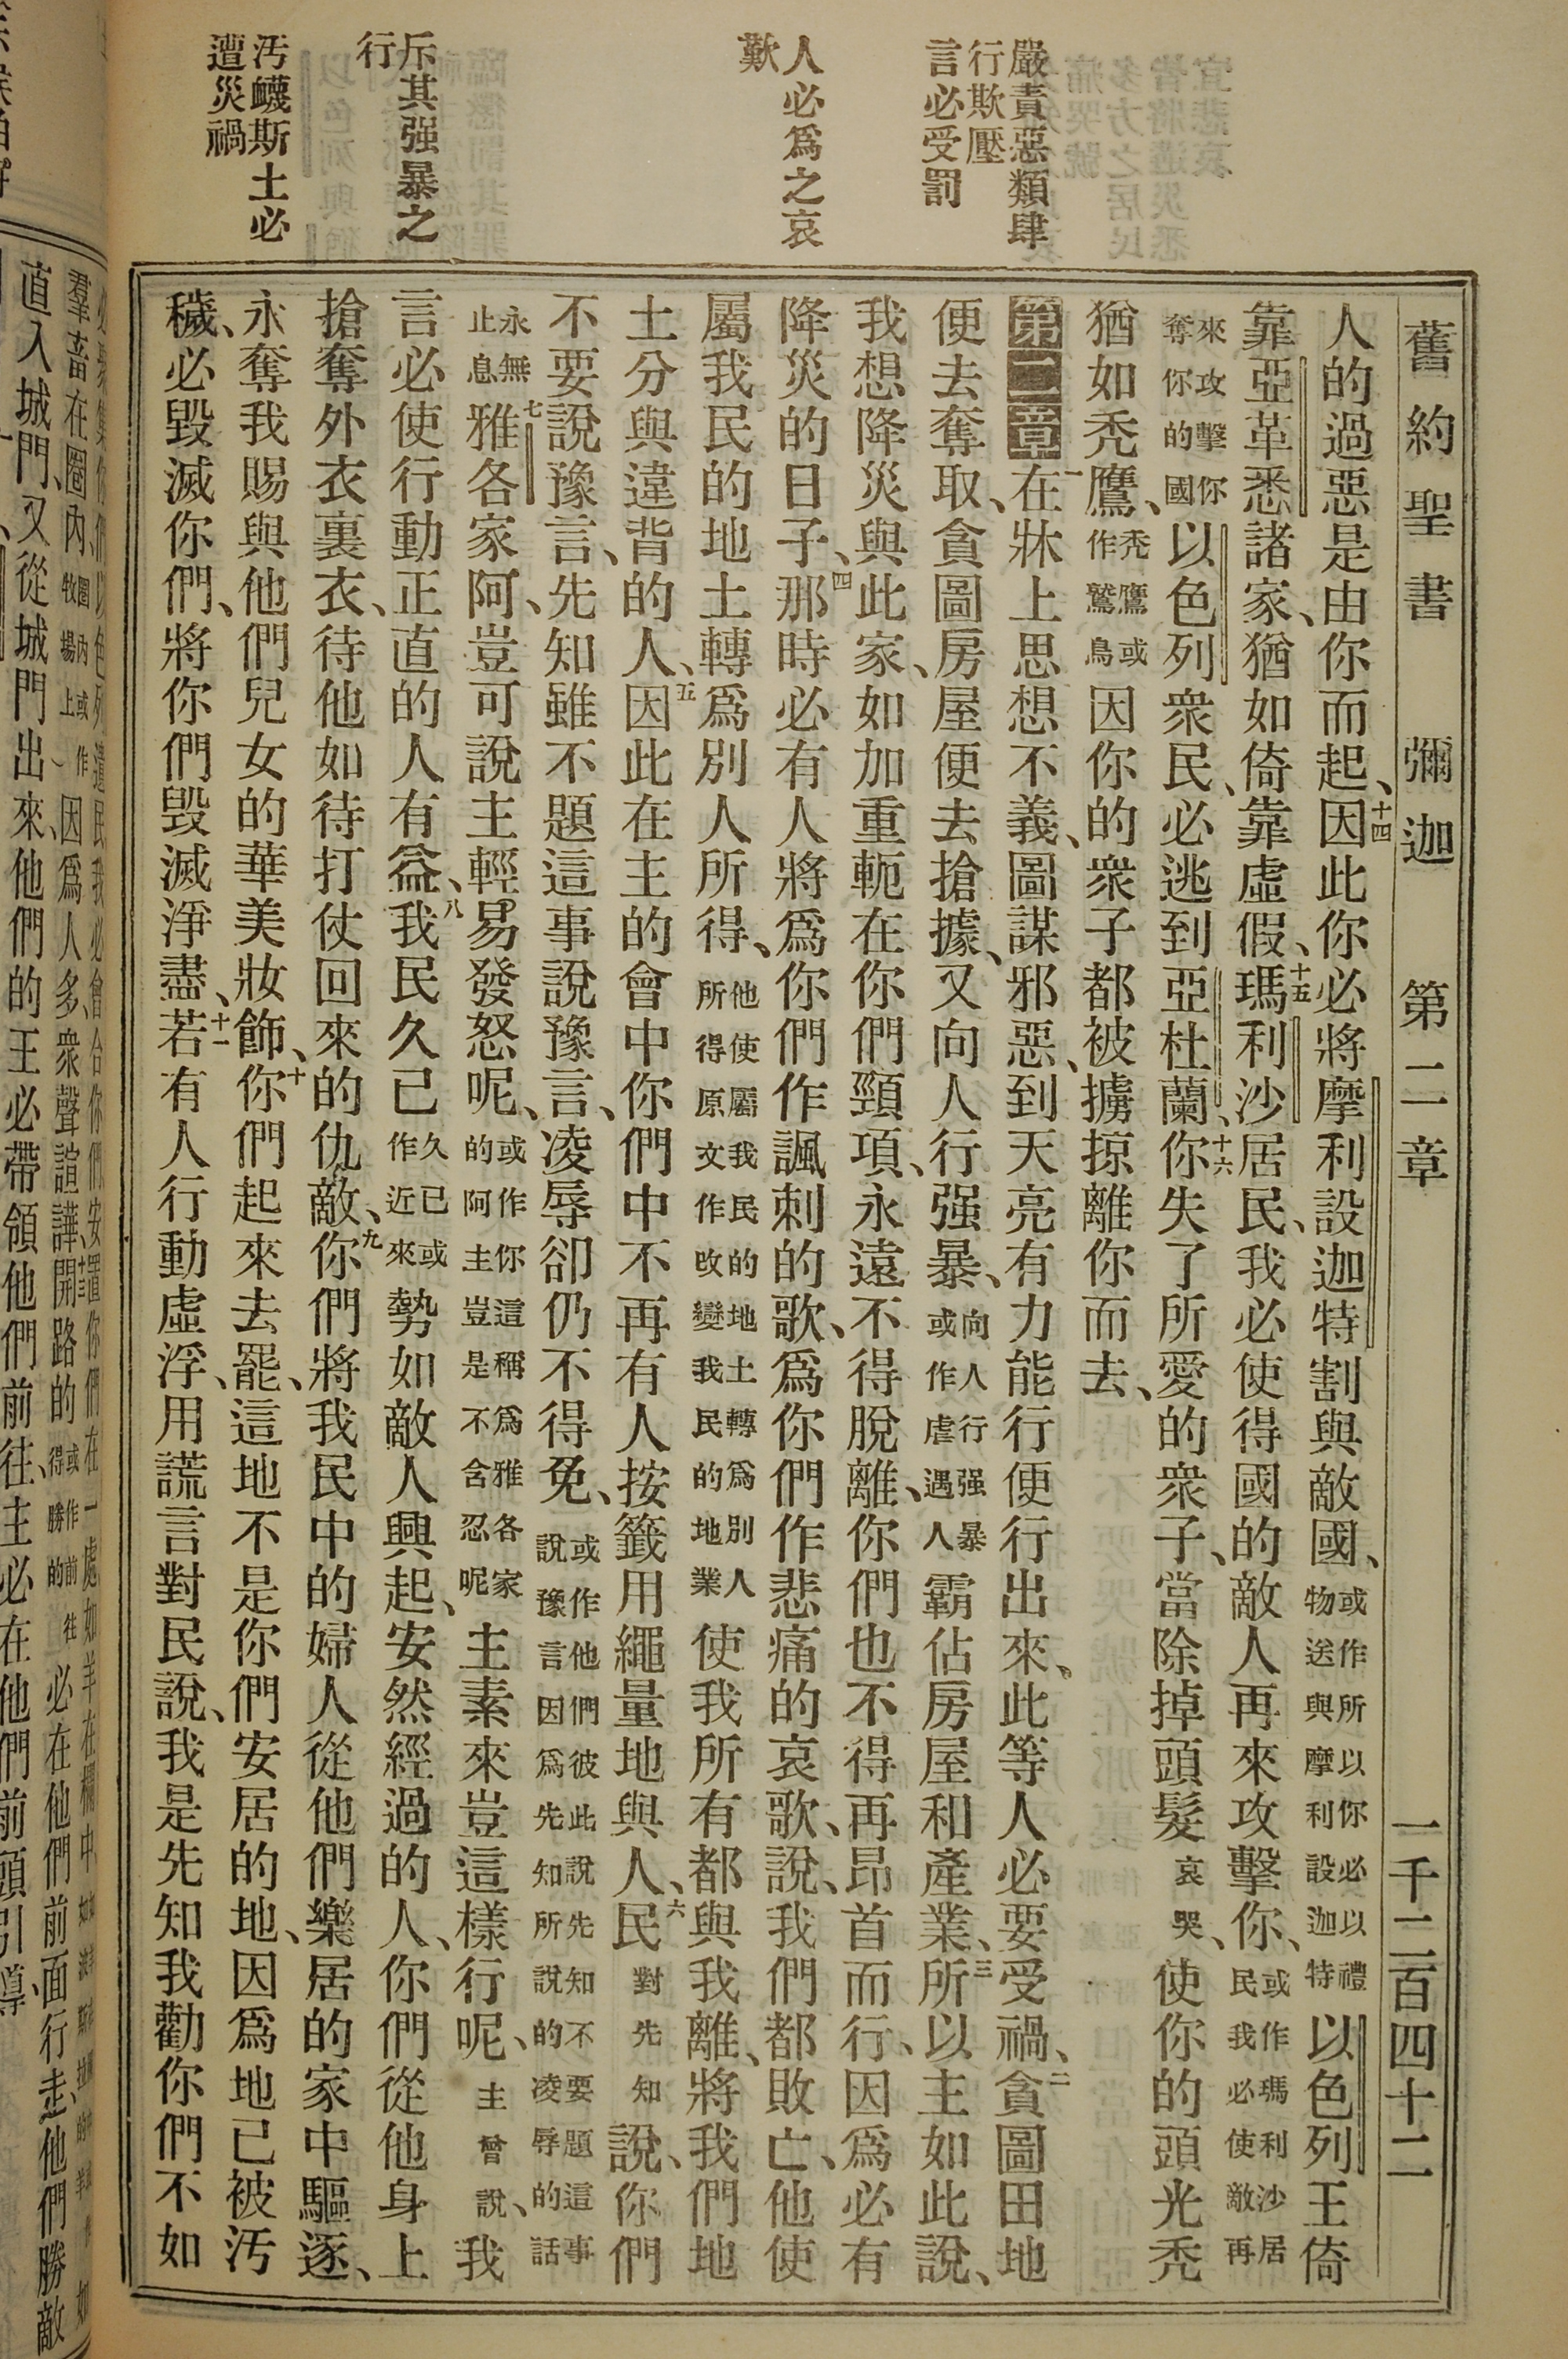 舊約聖書 彌迦 第二章 一千二百四十二
嚴責惡類肆
行欺壓
言必受罰
人必爲之哀
歎
斥其强暴之
行
汚衊斯土必
遭災禍
人的過惡是由你而起、十四因此你必將摩利設迦特割與敵國、或作所以你必以禮物送與摩利設迦特以色列王倚
靠亞革悉諸家、猶如倚靠虛假、十五瑪利沙居民、我必使得國的敵人再來攻擊你、或作瑪利沙居民我必使敵再
來攻擊你奪你的國以色列衆民、必逃到亞杜蘭、十六你失了所愛的衆子、當除掉頭髮哀哭、使你的頭光禿
猶如禿鷹、禿鷹或作鷲鳥因你的衆子都被擄掠離你而去、
第二章一在牀上思想不義、圖謀邪惡、到天亮有力能行便行出來、此等人必要受禍、二貪圖田地
便去奪取、貪圖房屋便去搶據、又向人行强暴、向人行强暴或作虐遇人霸佔房屋和產業、三所以主如此說、
我想降災與此家、如加重軛在你們頸項、永遠不得脫離、你們也不得再昂首而行、因爲必有
降災的日子、四那時必有人將爲你們作諷刺的歌、爲你們作悲痛的哀歌、說、我們都敗亡、他使
屬我民的地土轉爲別人所得、他使屬我民的地土轉爲別人所得原文作攺變我民的地業使我所有都與我離、將我們地
土分與違背的人、五因此在主的會中你們中不再有人按籤用繩量地與人、六民對先知說、你們
不要說豫言、先知雖不題這事說豫言、凌辱卻仍不得免、或作他們彼此說先知不要題這事說豫言因爲先知所說的凌辱的話
永無止息七雅各家阿、豈可說主輕易發怒呢、或作你這稱爲雅各家的阿主豈是不含忍呢主素來豈這樣行呢、主曾說、我
言必使行動正直的人有益、八我民久已久已或作近來勢如敵人興起、安然經過的人、你們從他身上
搶奪外衣裏衣、待他如待打仗回來的仇敵、九你們將我民中的婦人從他們樂居的家中驅逐、
永奪我賜與他們兒女的華美妝飾、十你們起來去罷、這地不是你們安居的地、因爲地已被汚
穢、必毀滅你們、將你們毀滅淨盡、十一若有人行動虛浮、用謊言對民說、我是先知我勸你們不如
直入城門、又從城門出來、他們的王必帶領他們前往、主必在他們前頭引導、